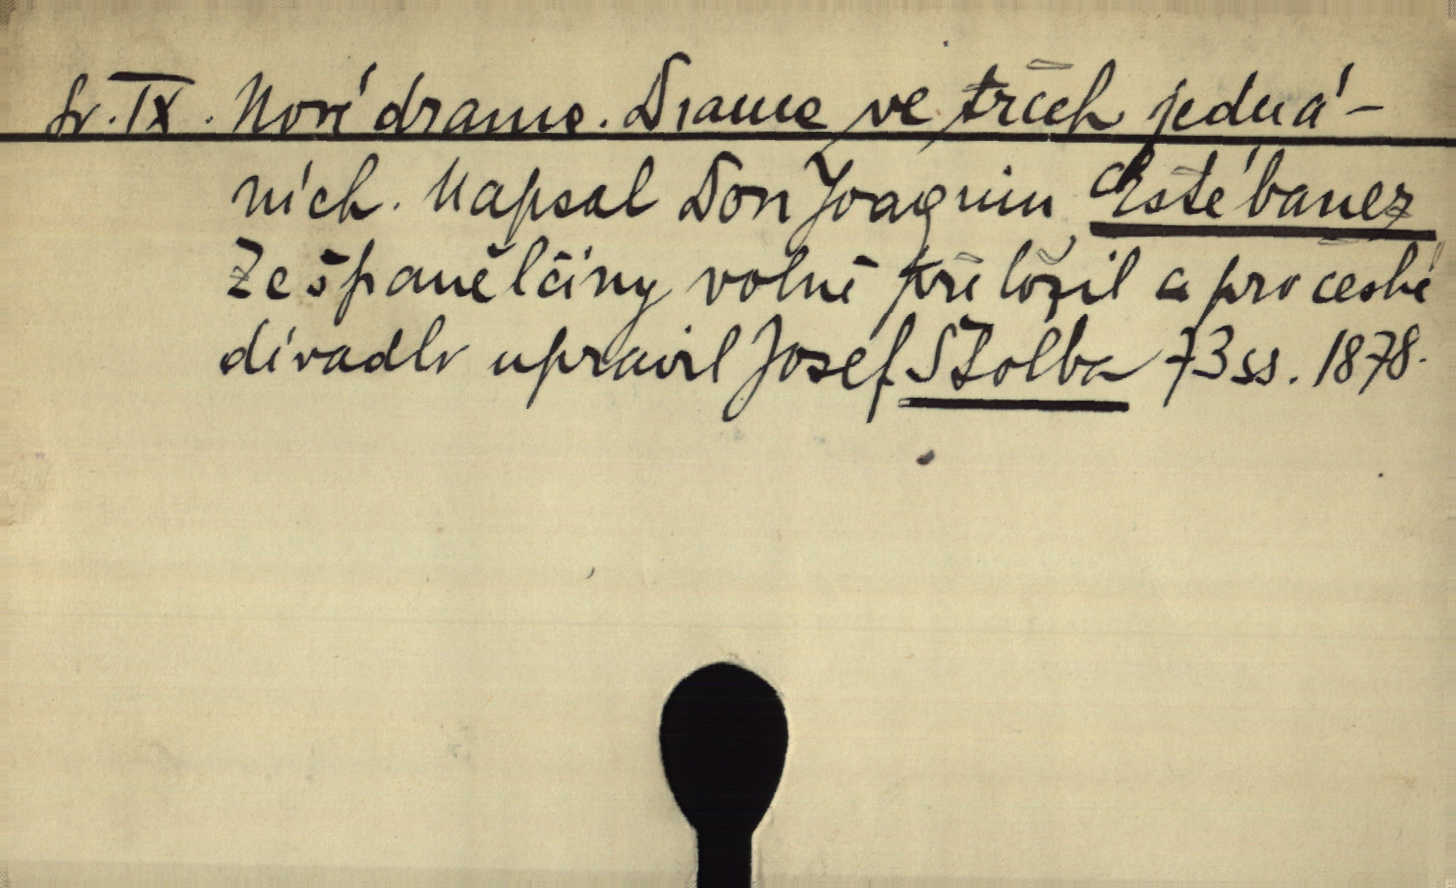 Sv. IX. Nové drama. Drama ve třech jedná-
ních. Napsal Don Joaquin Estébanez
Ze španělčiny volně přeložil a pro české
divadlo upravil Josef Štolba 73 ss. 1878.